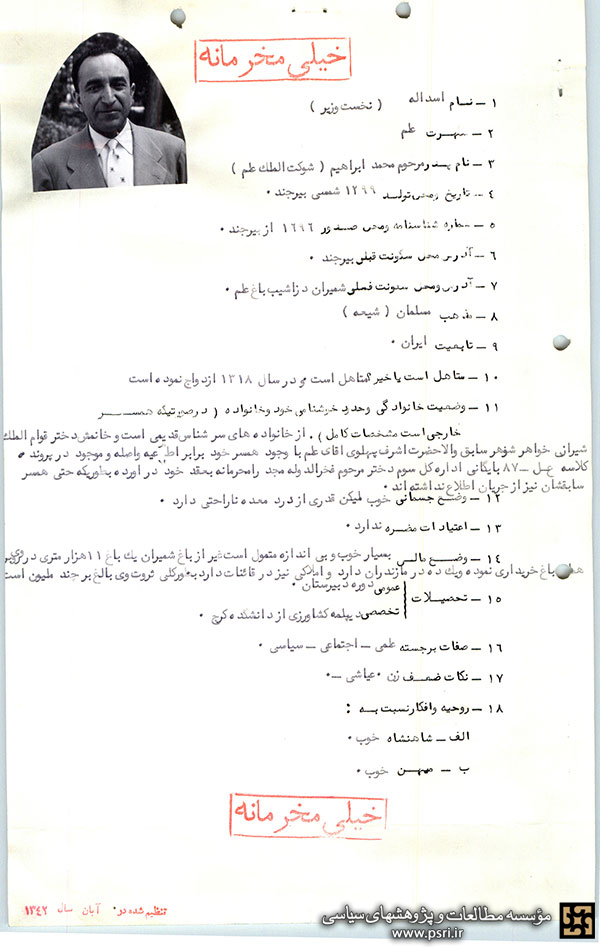 خیلی محرمانه
۱ – نام اسداله ( نخست وزیر )
۲ – شهرت علم
۳ – نام پدر مرحوم محمد ابراهیم ( شوکت الملک علم )
۴ – تاریخ ومحل تولد ۱۲۹۹ شمسی بیرجند ۰
۵ – شماره شناسنامه ومحل صدور ۱۶۹۶ از بیرجند ۰
۶ – آدرس محل سکونت قبلی بیرجند ۰
۷ – آدرس ومحل سکونت فعلی شمیران دزاشیب باغ علم ۰
۸ – مذهب مسلمان ( شیعه )
۹ – تابعیت ایران ۰
۱۰ – متاهل است یا خیر ؟ متاهل است و در سال ۱۳۱۸ ازدواج نموده است
۱۱ – وضعیت خانوادگی وحدود سرشناسی خود وخانواده ( درصورتیکه همسر
خارجی است مشخصات کامل ) ۰ از خانواده های سرشناس قدیمی است و خانمش دختر قوام الملک
شیرازی خواهر شوهر سابق والاحضرت اشرف پهلوی اقای علم با وجود همسر خود برابر اطلاعیه واصله و موجود در پرونده
کلاسه ع–ل –۸۷ بایگانی اداره کل سوم دختر مرحوم فخرالدوله مجد رامحرمانه بعقد خود در اورده بطوریکه حتی همسر
سابقشان نیز از جریان اطلاع نداشته اند ۰
۱۲ – وضع جسمانی خوب لیکن قدری از درد معده ناراحتی دارد ۰
۱۳ – اعتیادات مضره ندارد ۰
۱۴ – وضع مالی بسیار خوب و بی اندازه متمول است غیر از باغ شمیران یک باغ ۱۱هزار متری در روبروی
همان باغ خریداری نموده ویک ده در مازندران دارد و املاکی نیز در قائنات دارد بطورکلی ثروت وی بالغ بر چند ملیون است
۱۵ – تحصیلات عمومی دوره دبیرستان ۰
تخصصی دیپلمه کشاورزی از دانشکده کرج ۰
۱۶ – صفات برجسته علمی – اجتماعی – سیاسی ۰
۱۷ – نکات ضعف زن ۰ عیاشی – ۰
۱۸ – روحیه وافکار نسبت به :
الف – شاهنشاه خوب ۰
ب – میهن خوب ۰
خیلی محرمانه
تنظیم شده در ۰ آبان سال ۱۳۴۲
مؤسسه مطالعات و پژوهشهای سیاسی
www.psri.ir